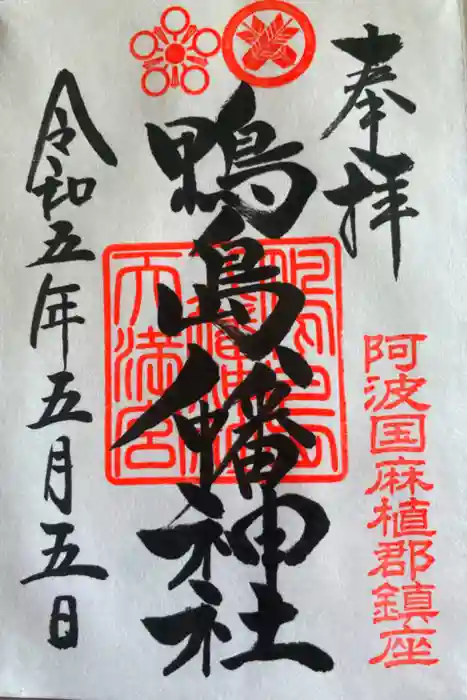 奉拝
阿波国麻植郡鎮座
鴨島八幡神社
天満宮
令和五年五月五日